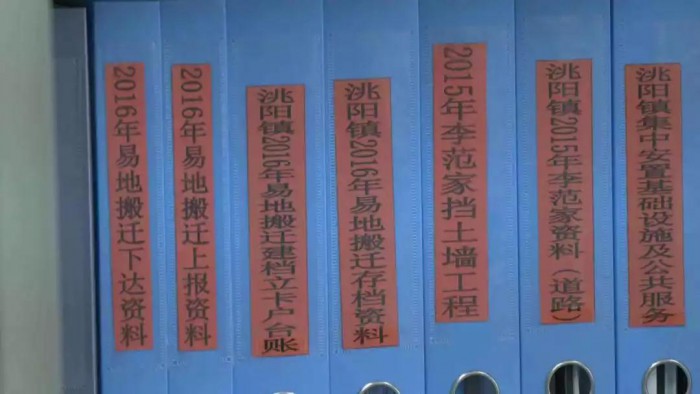 2016年易地搬迁下达资料
2016年易地搬迁上报资料
洮阳镇2016年易地搬迁建档立卡户台账
洮阳镇2016年易地搬迁存档资料
2015年李范家挡土墙工程
洮阳镇2015年李范家资料（道路）
洮阳镇集中安置基础设施及公共服务